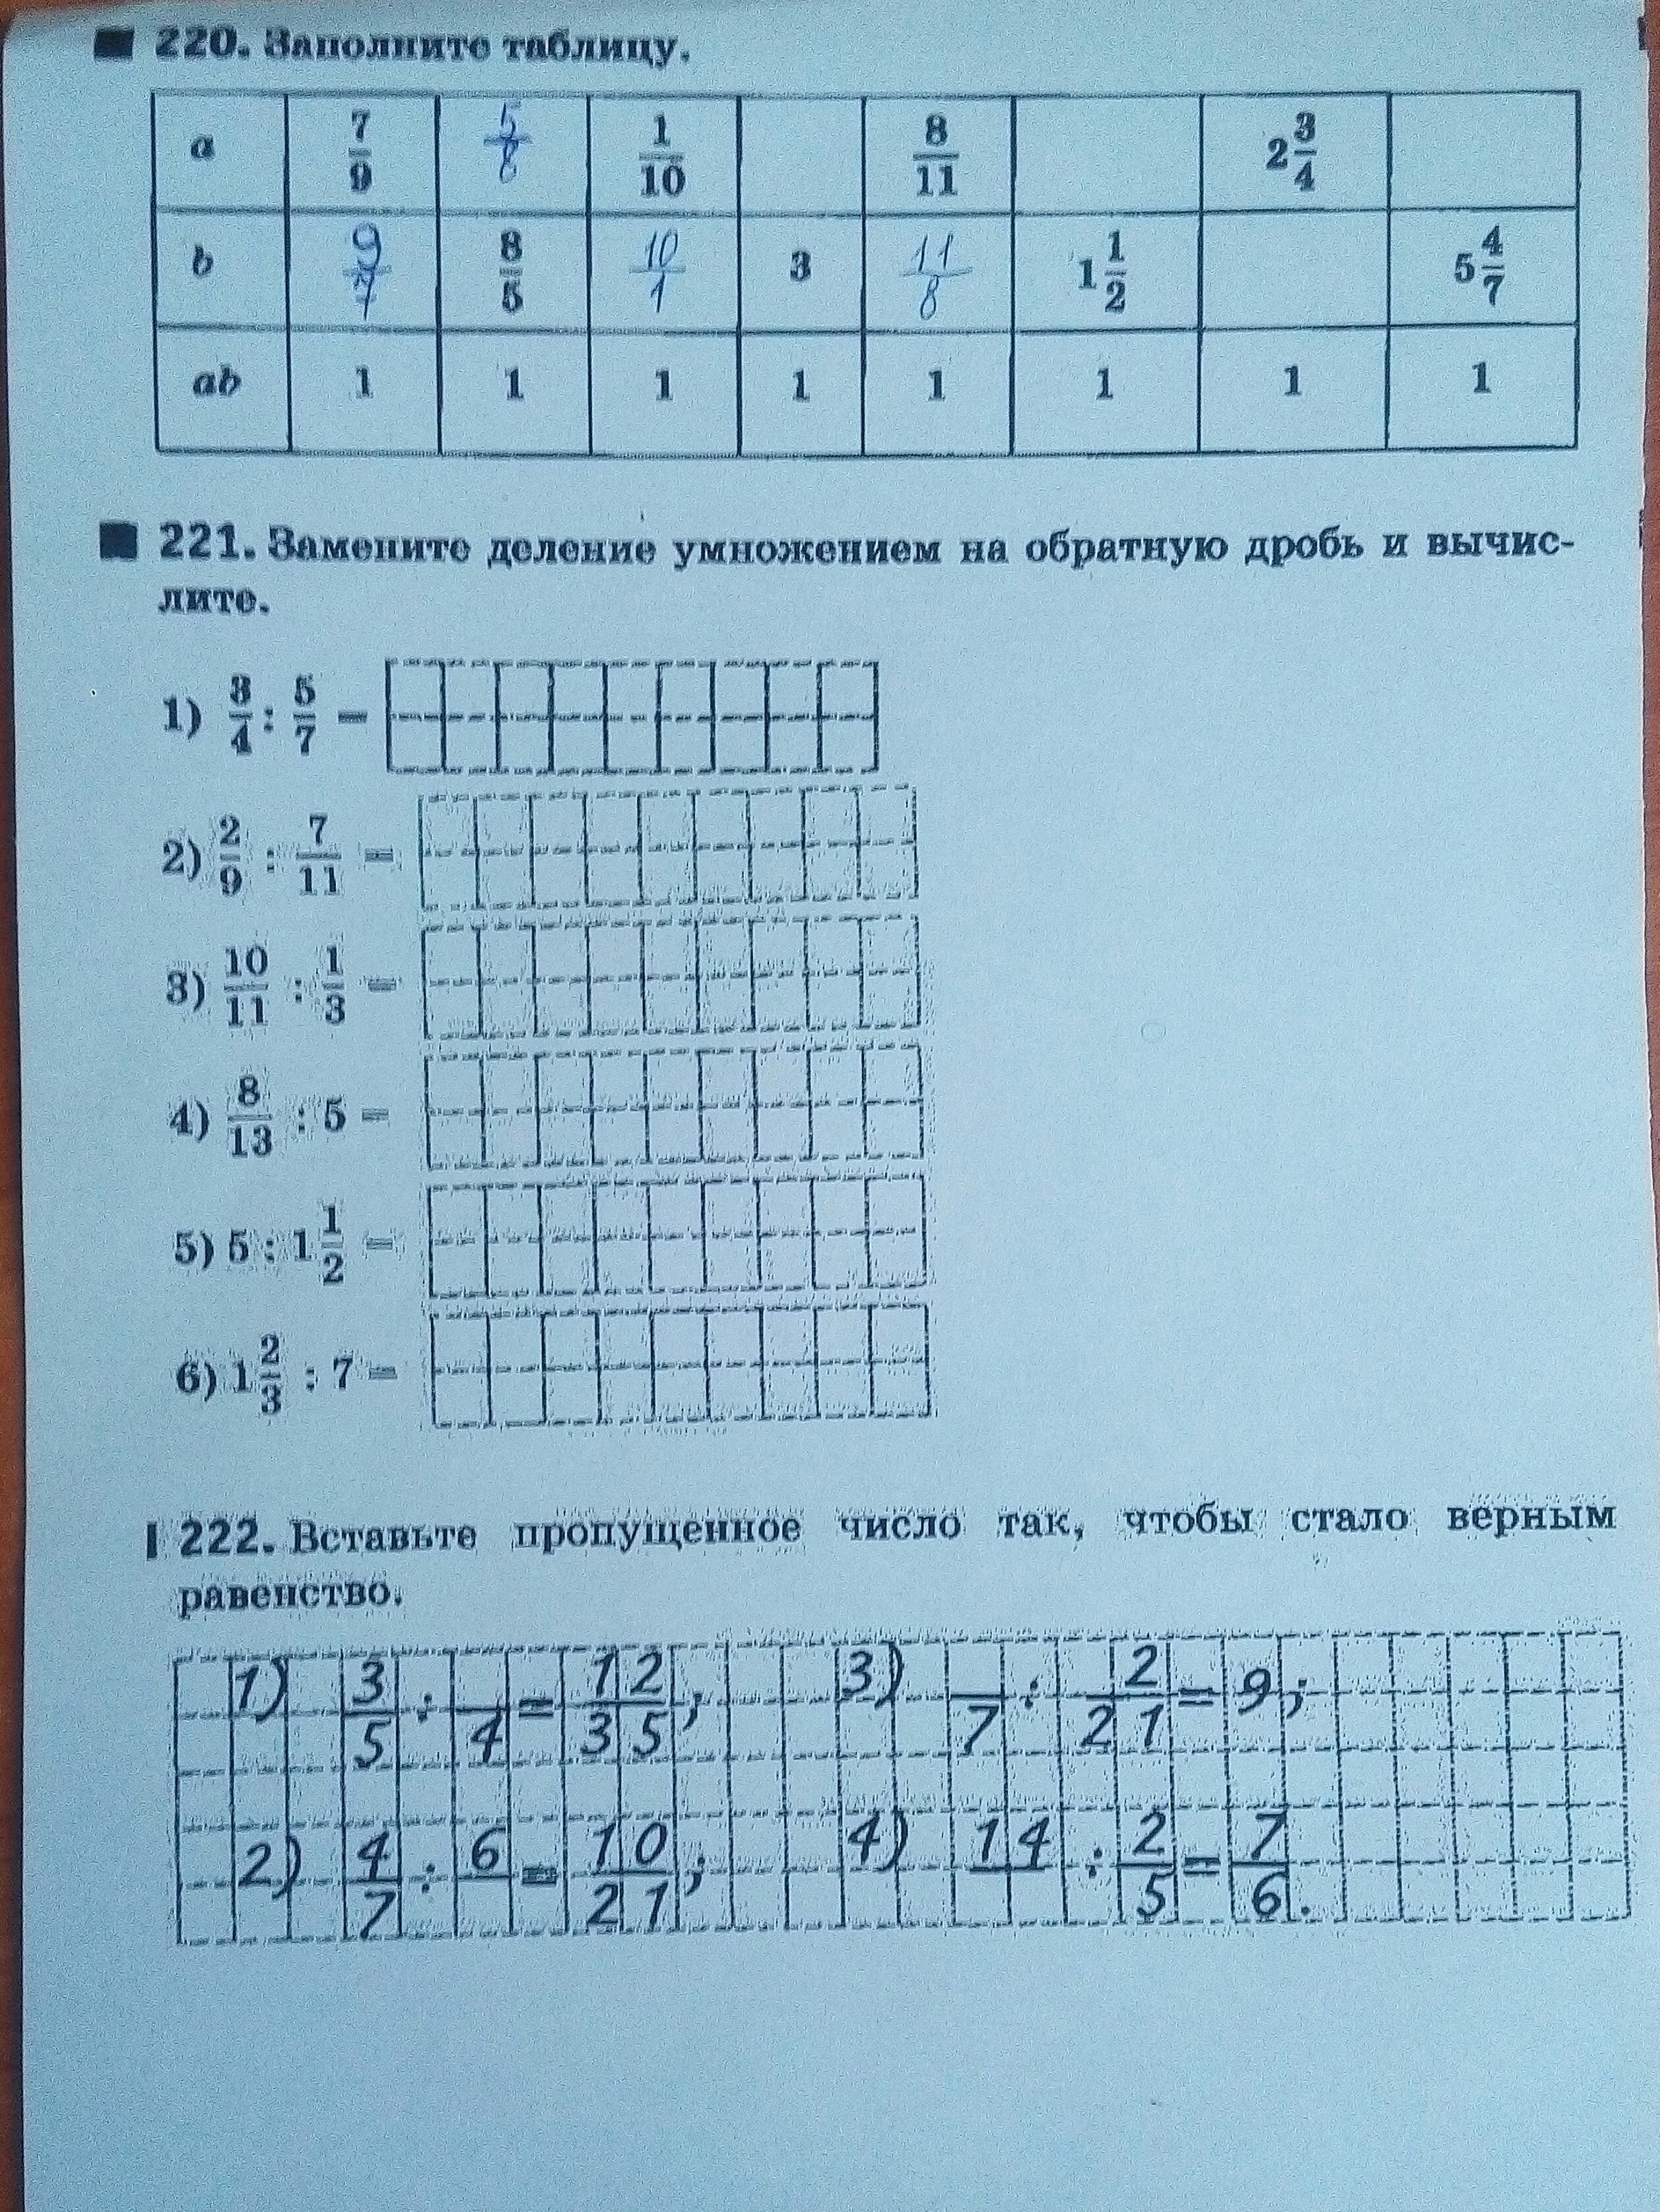 220. Заполните таблицу.
a 7/9 5/8 1/10 8/11 2 3/4
b 9/7 8/5 10/1 3 11/8 1 1/2 5 4/7
ab 1 1 1 1 1 1 1 1
221. Замените деление умножением на обратную дробь и вычис-
лите.
1) 3/4 : 5/7 =
2) 2/9 : 7/11 =
3) 10/11 : 1/3 =
4) 8/13 : 5 =
5) 5 : 1 1/2 =
6) 1 2/3 : 7 =
222. Вставьте пропущенное число так, чтобы стало верным
равенство.
1) 3/5 : /4 = 12/35; 3) /7 : 2/21 = 9;
2) 4/7 : 6/ = 10/21; 4) 14/ : 2/5 = 7/6.